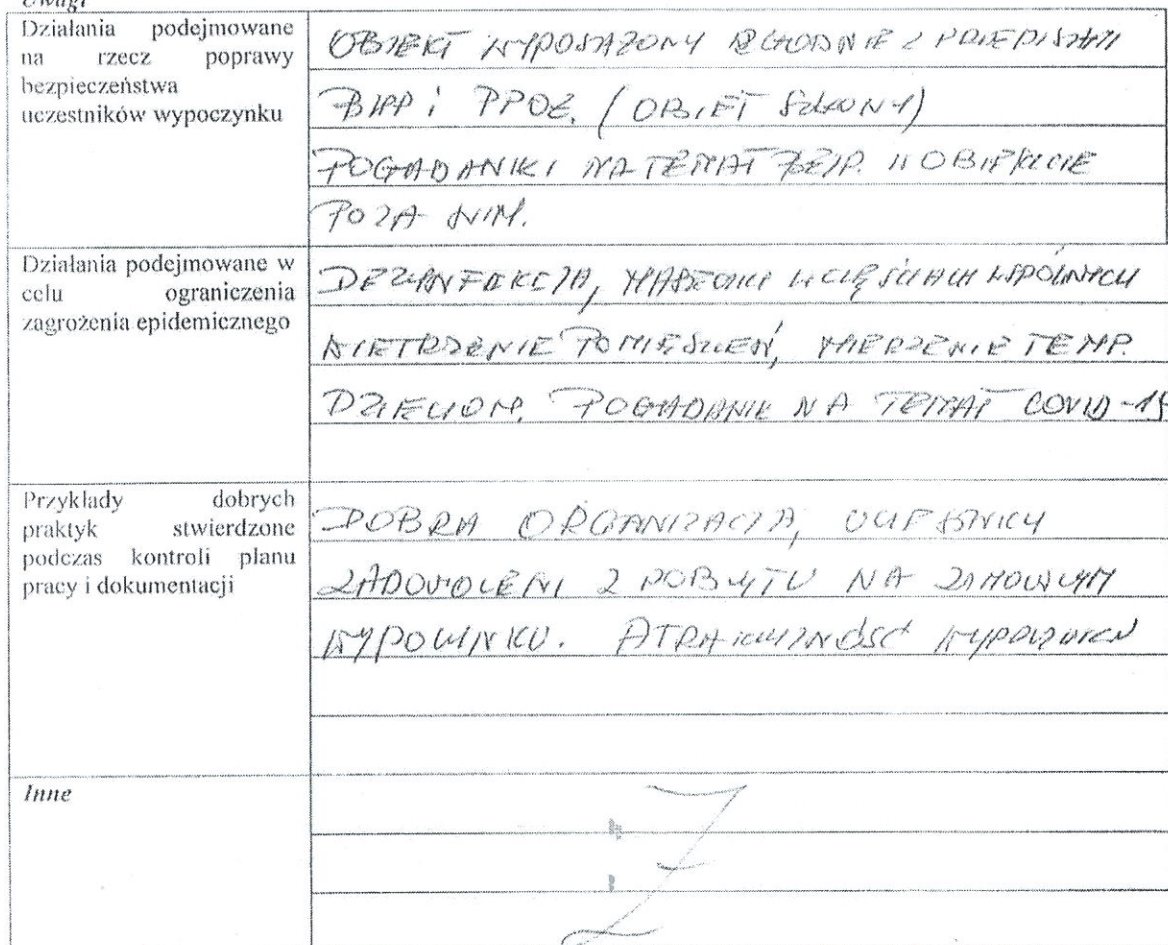 Uwagi
Działania podejmowane
na rzecz poprawy
bezpieczeństwa
uczestników wypoczynku
OBIEKT WYPOSAŻONY ZGODNIE Z PRZEPISAMI
BHP i PPOŻ. (OBIET SZKOLNY)
POGADANKI NA TEMAT BEZP. W OBIEKCIE
POZA NIM.
Działania podejmowane w
celu ograniczenia
zagrożenia epidemicznego
DEZYNFEKCJA, MASECZKI W CZĘŚCIACH WSPÓLNYCH
WIETRZENIE POMIESZCZEŃ, MIERZENIE TEMP.
DZIECIOM. POGADANKI NA TEMAT COVID-19
Przykłady dobrych
praktyk stwierdzone
podczas kontroli planu
pracy i dokumentacji
DOBRA ORGANIZACJA, UCZESTNICY
ZADOWOLENI Z POBYTU NA ZIMOWYM
WYPOCZYNKU. ATRAKCYJNOŚĆ
Inne